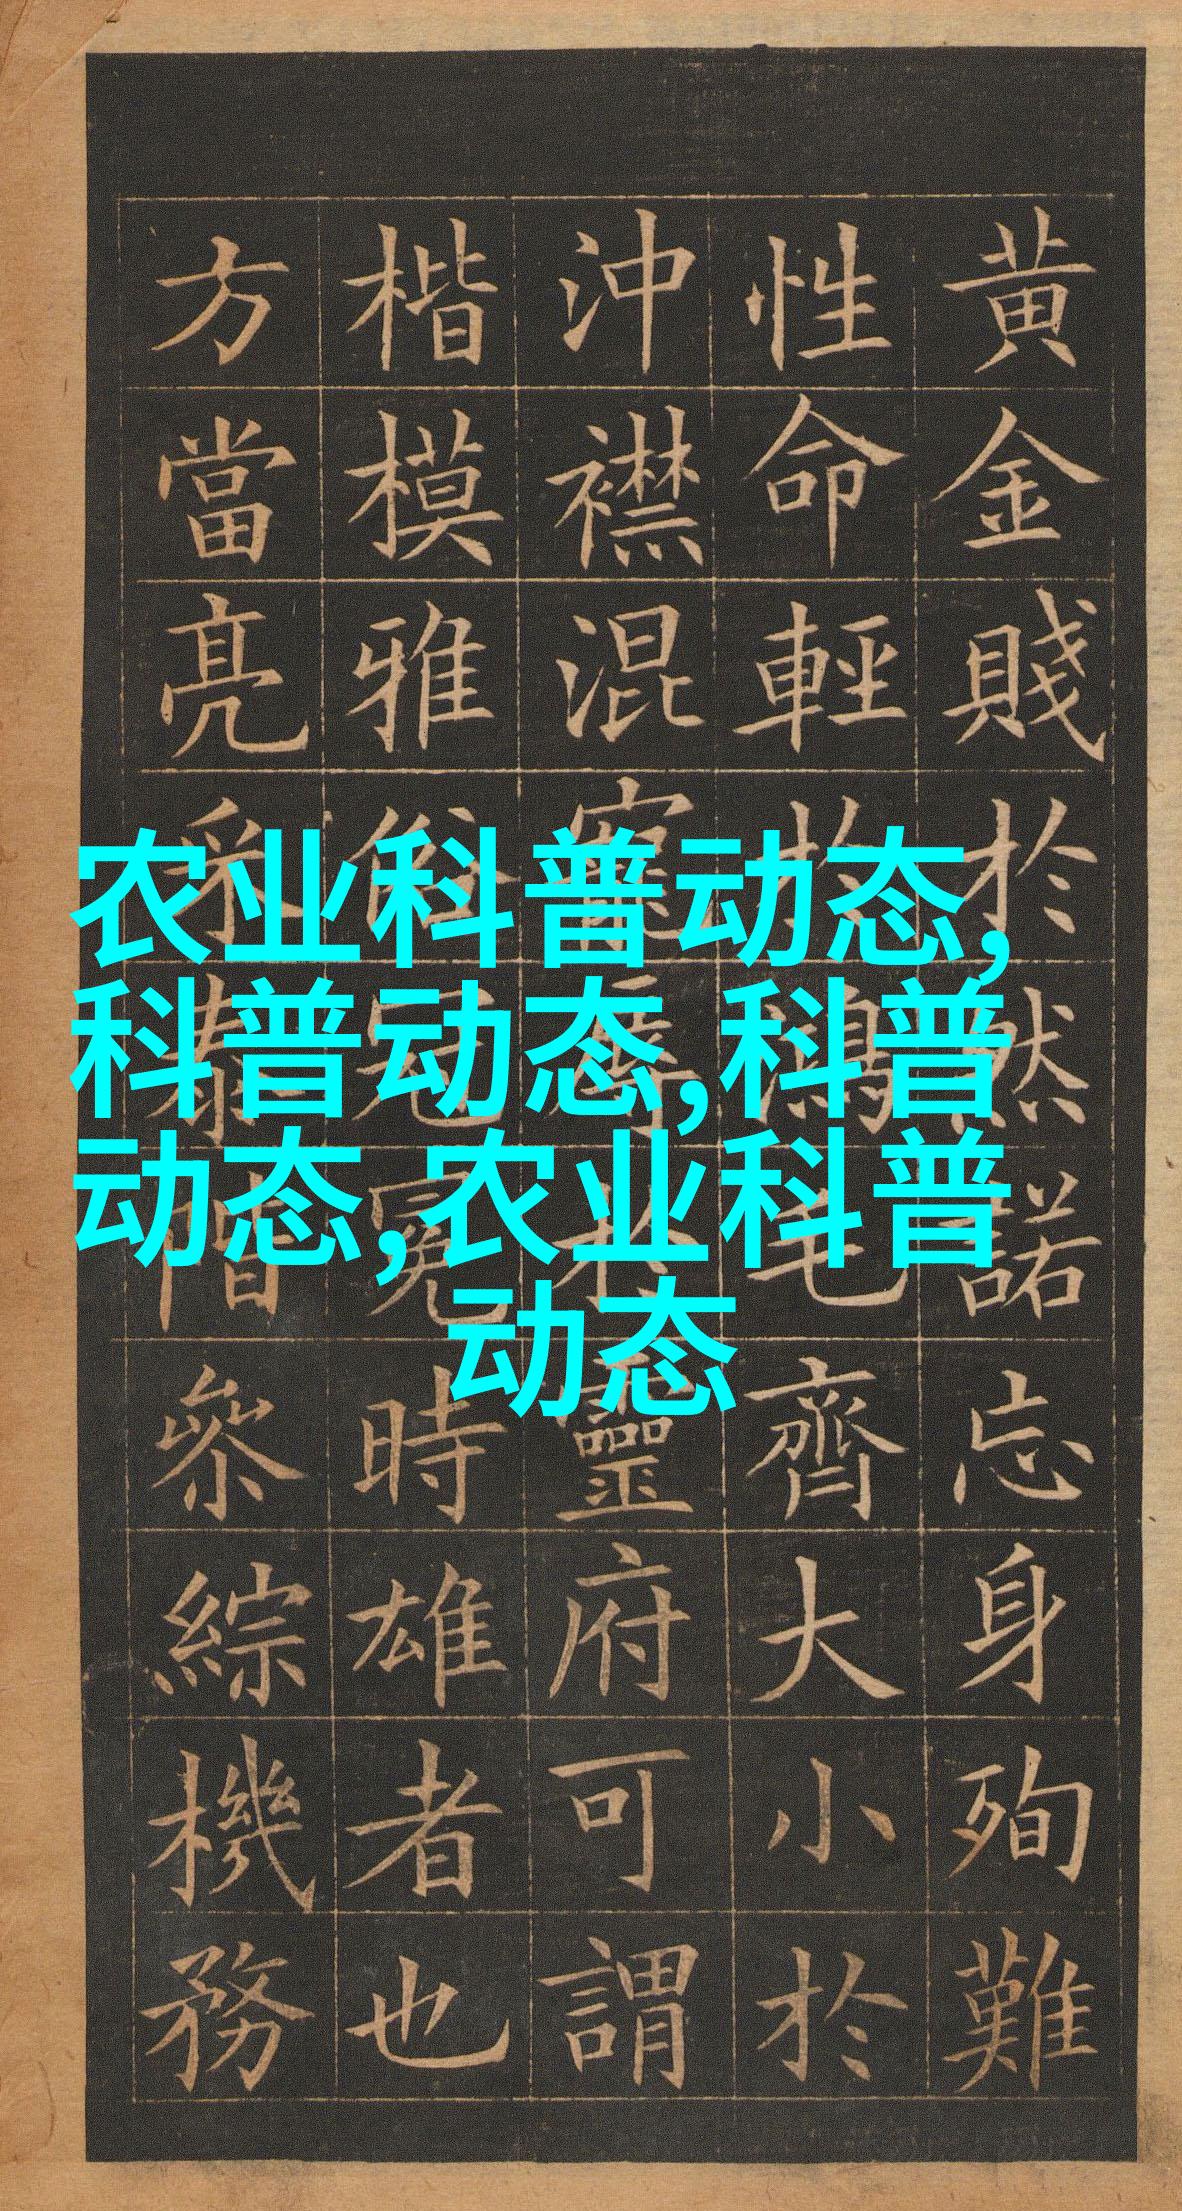 黄金賤於然諾忘身殉難
性命輕於鴻毛齊大小於
沖襟混寵辱於靈府可謂
楷模雅俗冠冕時雄者也
方當亮采靠階參綜機務
农业科普动态,
科普动态,科普
动态,农业科普
动态